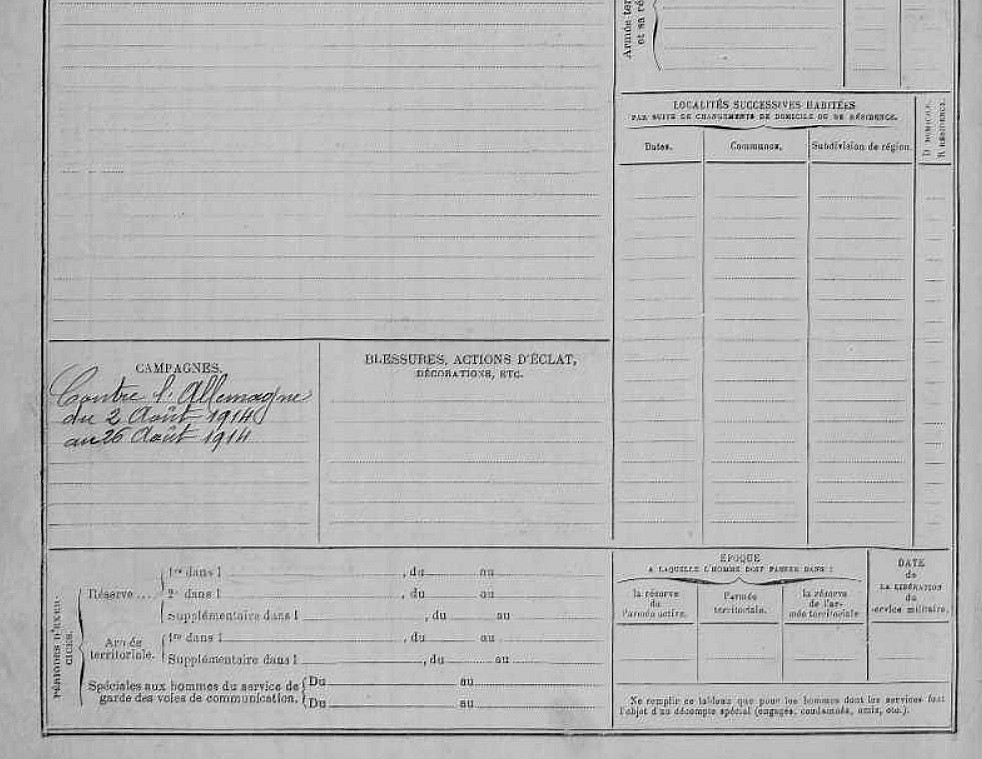 Armée ter
et sa ré
LOCALITÉS SUCCESSIVES HABITÉES
PAR SUITE DE CHANGEMENTS DE DOMICILE OU DE RÉSIDENCE.
D DOMICILE.
R RÉSIDENCE.
Dates.
Communes.
Subdivision de région.
CAMPAGNES.
Contre l'Allemagne
du 2 Août 1914
au 26 Août 1914
BLESSURES, ACTIONS D'ÉCLAT,
DÉCORATIONS, ETC.
PÉRIODES D'EXER-
CICES.
Réserve ....
1re dans l , du au
2e dans l , du au
Supplémentaire dans l , du au
Armée
territoriale.
1re dans l , du au
Supplémentaire dans l , du au
Spéciales aux hommes du service de
garde des voies de communication.
Du au
Du au
ÉPOQUE
A LAQUELLE L'HOMME DOIT PASSER DANS :
la réserve
de
l'armée active.
l'armée
territoriale.
la réserve
de l'ar-
mée territoriale
DATE
de
LA LIBÉRATION
du
service militaire.
Ne remplir ce tableau que pour les hommes dont les services font
l'objet d'un décompte spécial (engagés, condamnés, omis, etc.).